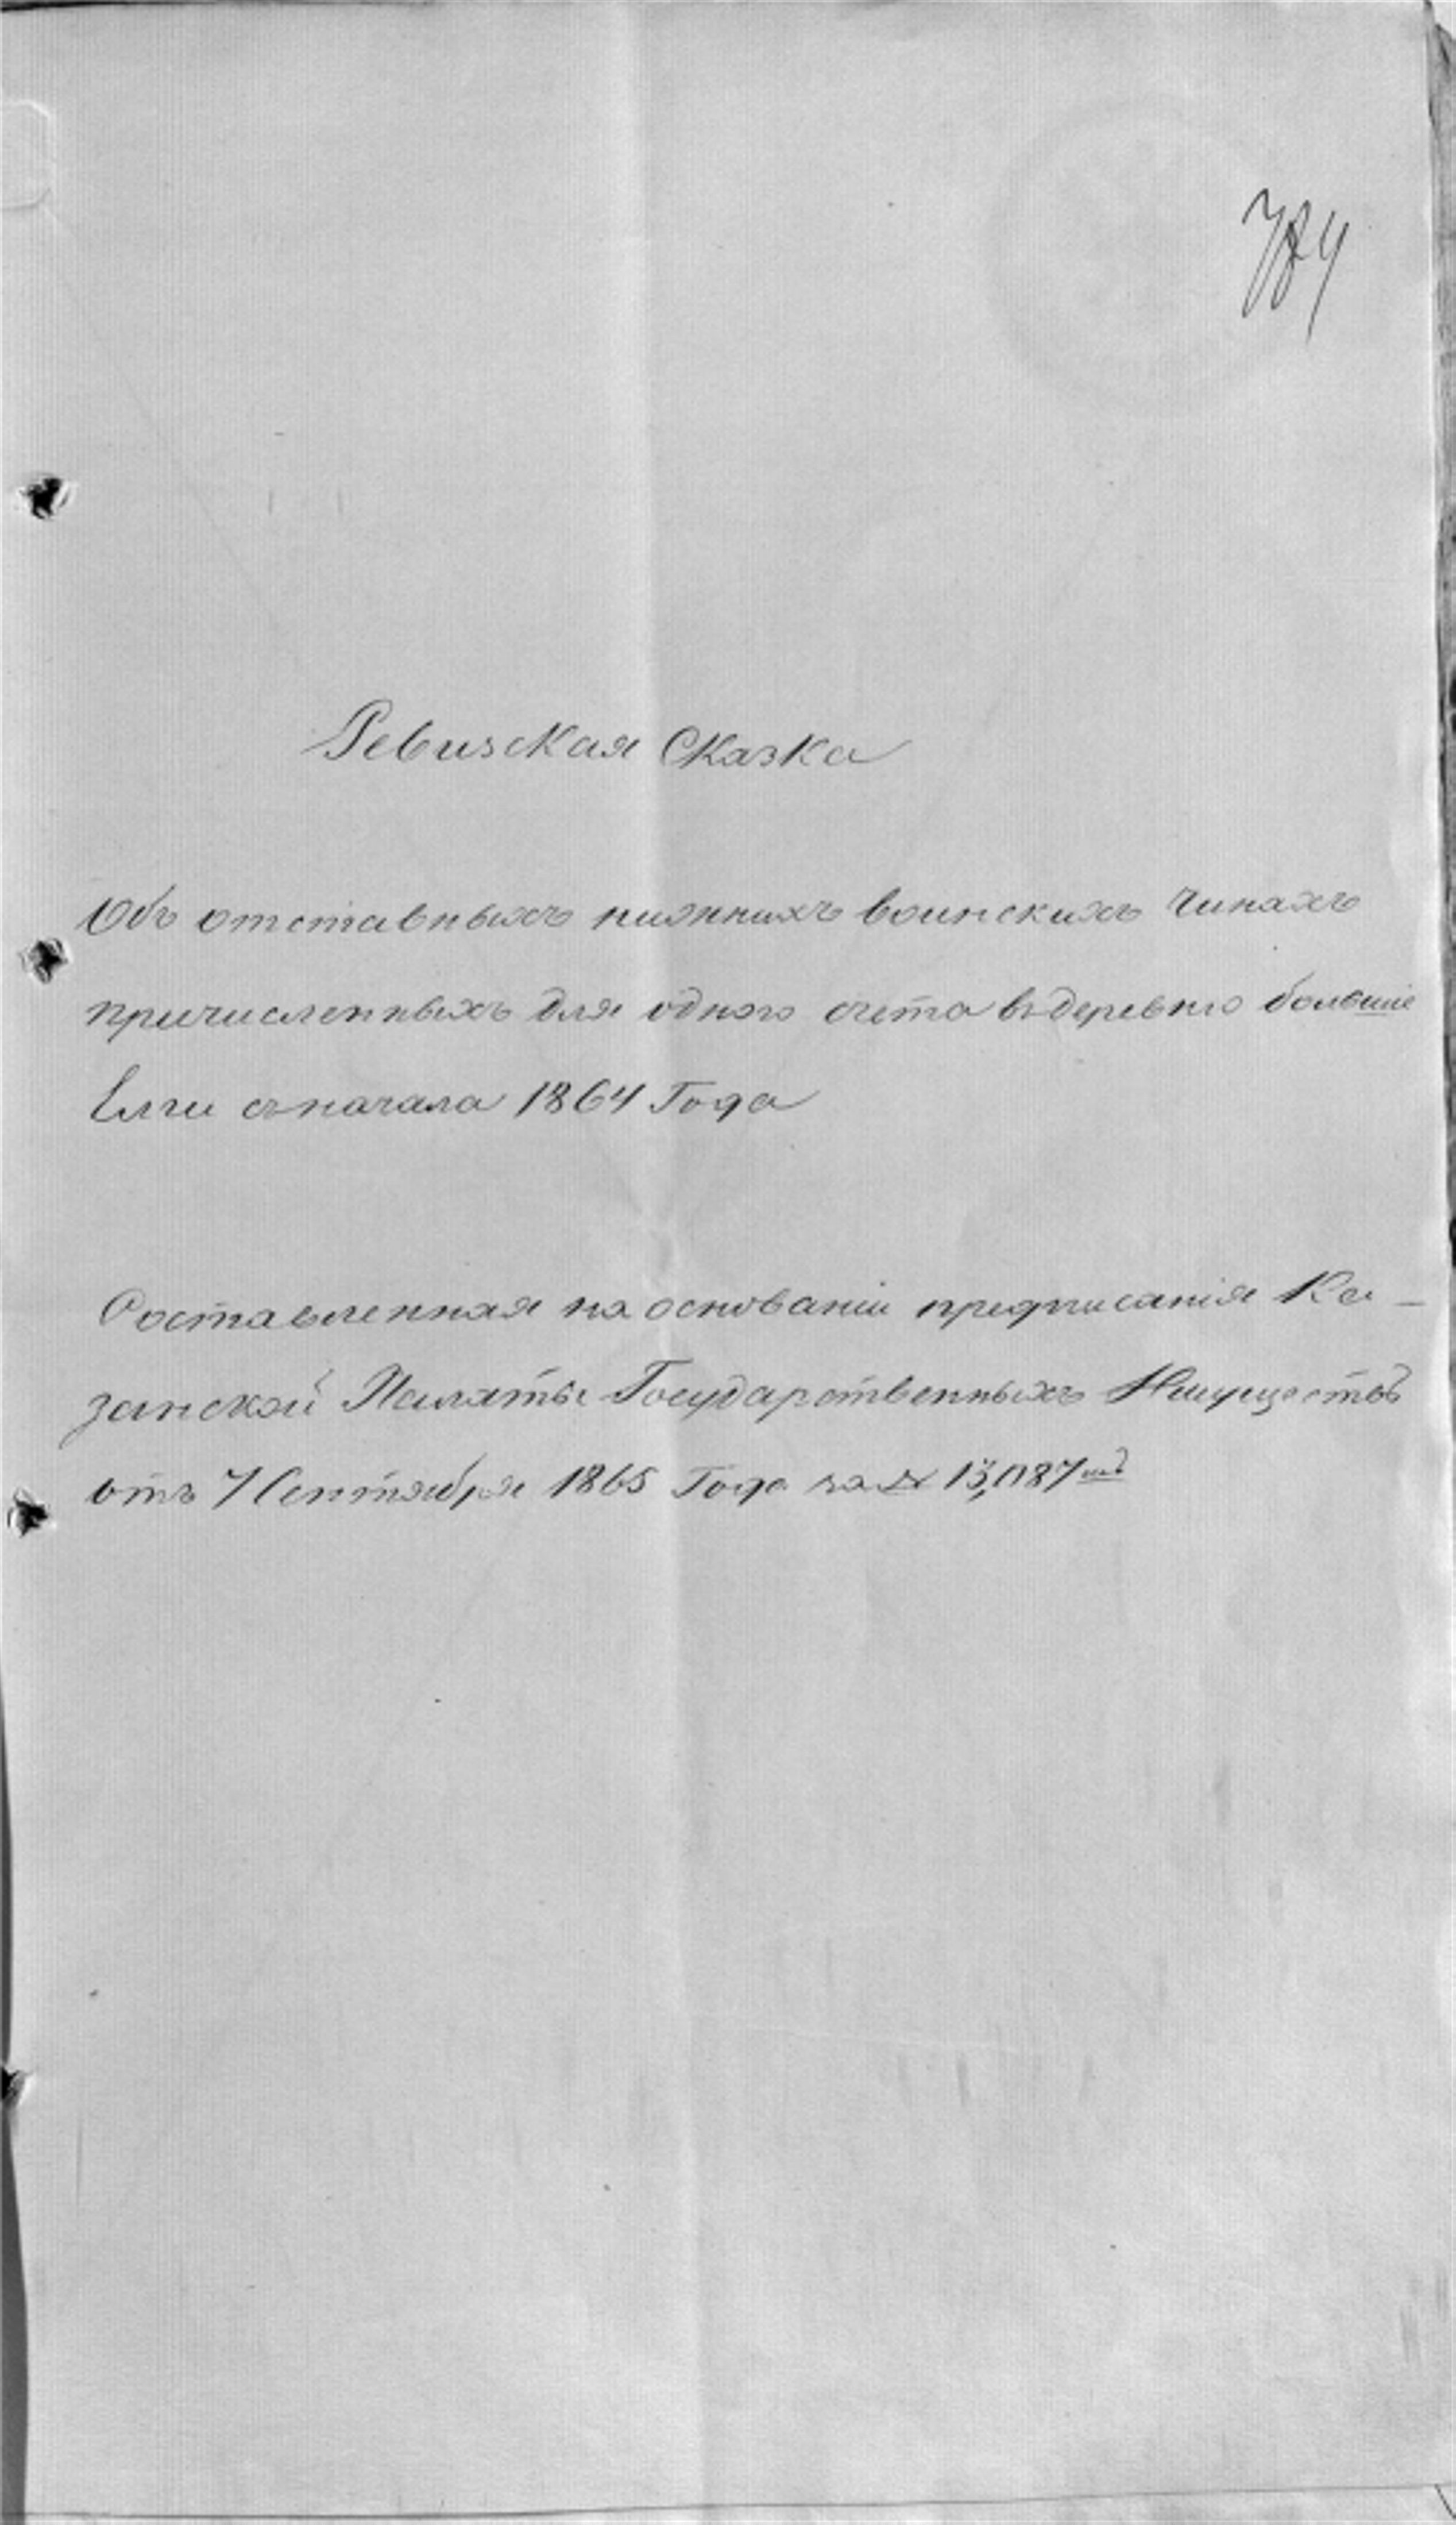 784
Ревизская Сказка
Объ отставныхъ нижнихъ воинскихъ Чинахъ
причисленныхъ для одного счета въ деревню большіе
Елги съ начала 1864 Года
Составленная на основаніи предписанія Ка-
занской Палаты Государственныхъ Имуществъ
отъ 7 Сентября 1865 Года за №